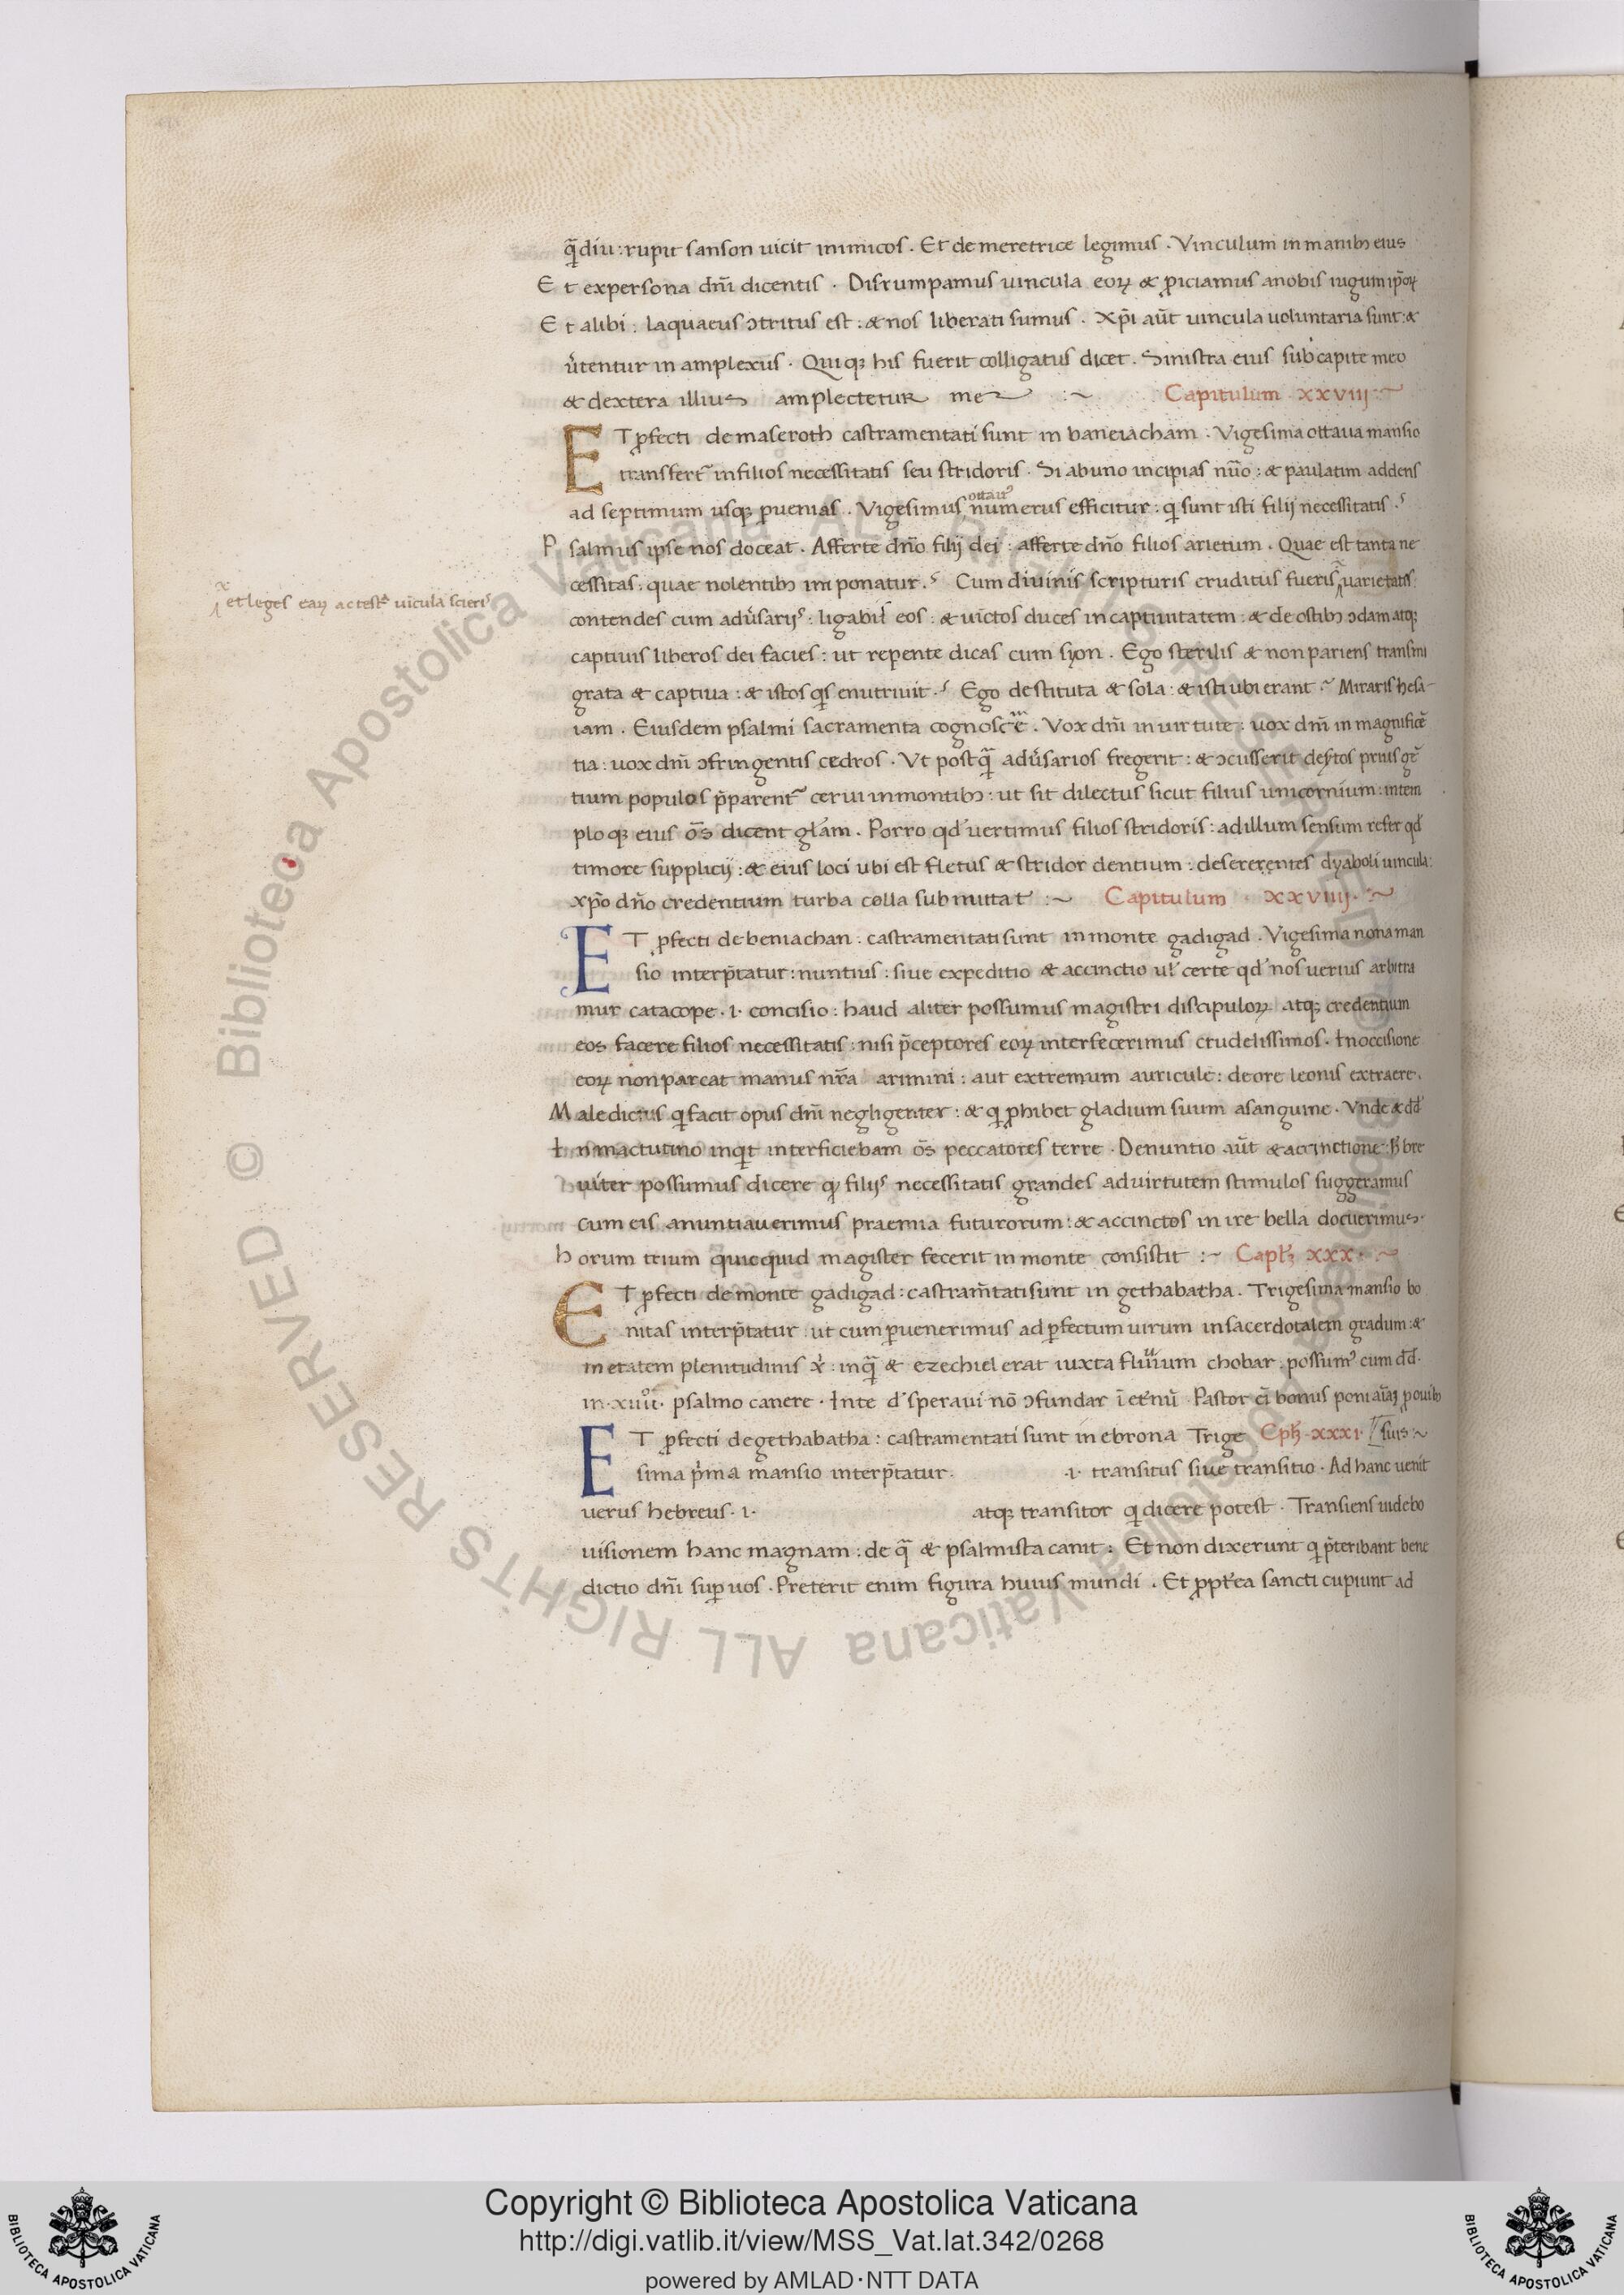 q̄diu : rupit sanson uicit inimicos . Et de meretrice legimus . Vinculum in manibꝫ eius
Et expersona dn̄i dicentis . Disrumpamus uincula eoꝝ & ꝓiciamus anobis iugum ip̄oꝝ
Et alibi : laquaeus ꝯtritus est : & nos liberati sumus . Xp̄i aūt uincula uoluntaria sunt : &
u̓tentur in amplexus . Quiqꝫ his fuerit colligatus dicet . Sinistra eius sub capite meo
& dextera illius amplectetur me :~ Capitulum xxviii :~
ET ꝓfecti de maseroth castramentati sunt in baneiacham . Vigesima ottaua mansio
transfert᷒ infilios necessitatis seu stridoris . Si abuno incipias nūo : & paulatim addens
ad septimum usqꝫ ꝑuenias . Vigesimus ottau᷒ numerus efficitur : qͥ sunt isti filij necessitatis .
Psalmus ipse nos doceat . Afferte dn̄o filij dei : afferte dn̄o filios arietum . Quae est tanta ne
cessitas : quae nolentibꝫ imponatur . Cum diuinis scripturis eruditus fueris uarietatis :
et leges eaꝝ ac test᷒ uīcula scieris
contendes cum adu̓sarijs : ligabis eos : & uīctos duces in captiuitatem : & de ostibꝫ ꝯdam atqꝫ
captiuis liberos dei facies : ut repente dicas cum syon . Ego sterilis & non pariens transmi
grata & captiua : & istos qͥs enutriuit . Ego destituta & sola : & isti ubi erant . Miraris hesa
iam . Eiusdem psalmi sacramenta cognosce . Vox dn̄i in uirtute : uox dn̄i in magnificē
tia : uox dn̄i ꝯfringentis cedros . Vt postq̄ adu̓sarios fregerit : & ꝯcusserit des̓tos prius gē
tium populos p̄parent᷒ cerui in montibꝫ : ut sit dilectus sicut filius unicornium : intem
plo qꝫ eius ōs dicent glām . Porro qd̓ uertimus filios stridoris : ad illum sensum refer qd̓
timore supplicij : & eius loci ubi est fletus & stridor dentium : desererentes dyaboli uincula :
xp̄o dn̄o credentium turba colla submittat :~ Capitulum xxviiij. :~
ET ꝓfecti de beniachan . castramentati sunt in monte gadigad . Vigesima nona man
sio interp̄tatur : nuntius : siue expeditio & accinctio ul̓ certe qd̓ nos uerius arbitra
mur catacope . i . concisio : haud aliter possumus magistri discipuloꝝ atqꝫ credentium
eos facere filios necessitatis : nisi p̄ceptores eoꝝ interfecerimus crudelissimos . In occisione
eoꝝ non parcat manus nr̄a arimini : aut extremum auricule : de ore leonis extraere .
Maledictus qͥ facit opus dn̄i negligenter : & qͥ ꝓhibet gladium suum asanguine . Vnde & dd̄
In mactutino inqͥt interficiebam ōs peccatores terre . Denuntio aūt & accinctione h̄ bre
uiter possumus dicere qꝫ filijs necessitatis grandes ad uirtutem stimulos suggeramus
cum eis anuntiauerimus praemia futurorum : & accinctos in ire bella docuerimus .
horum trium quicquid magister fecerit in monte consistit :~ Capl̓ꝫ xxx . ~
ET ꝓfecti de monte gadigad : castram̄tati sunt in gethabatha . Trigesima mansio bo
nitas interp̄tatur : ut cum ꝑuenerimus ad ꝑfectum uirum in sacerdotalem gradum : &
in etatem plenitudinis x̓ : in q̄ & ezechiel erat iuxta fluuium chobar . possum᷒ cum dd̄ .
in . xiiii . psalmo canere . In te d̓ speraui nō ꝯfundar ī et̓nū . Pastor ei bonus ponit aīaꝫ ꝓ ouibꝫ
ET ꝓfecti de gethabatha : castramentati sunt in ebrona Trige Cpl̓ꝫ . xxxi . suis ~
sima p̓ma mansio interp̄tatur . . i . transitus siue transitio . Ad hanc uenit
uerus hebreus . i . atqꝫ transitor qͥ dicere potest . Transiens uidebo
uisionem hanc magnam : de q̄ & psalmista canit : Et non dixerunt qͥ p̄teribant bene
dictio dn̄i suꝑ uos . Preterit enim figura huius mundi . Et ꝓpt̓ea sancti cupiunt ad
Copyright © Biblioteca Apostolica Vaticana
http://digi.vatlib.it/view/MSS_Vat.lat.342/0268
powered by AMLAD·NTT DATA
BIBLIOTECA APOSTOLICA VATICANA
BIBLIOTECA APOSTOLICA VATICANA
© Biblioteca Apostolica Vaticana ALL RIGHTS RESERVED